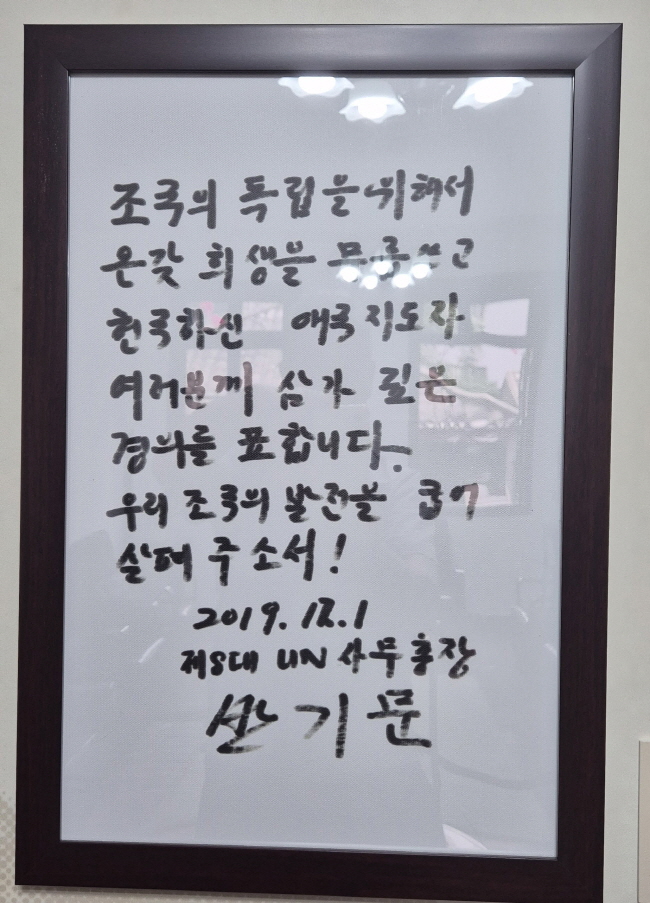 조국의 독립을 위해서
온갖 희생을 무릅쓰고
헌국하신 애국지도자
여러분께 삼가 깊은
경의를 표합니다.
우리 조국의 발전을 굽어
살펴 주소서!
2019. 12. 1
제8대 UN 사무총장
반기문